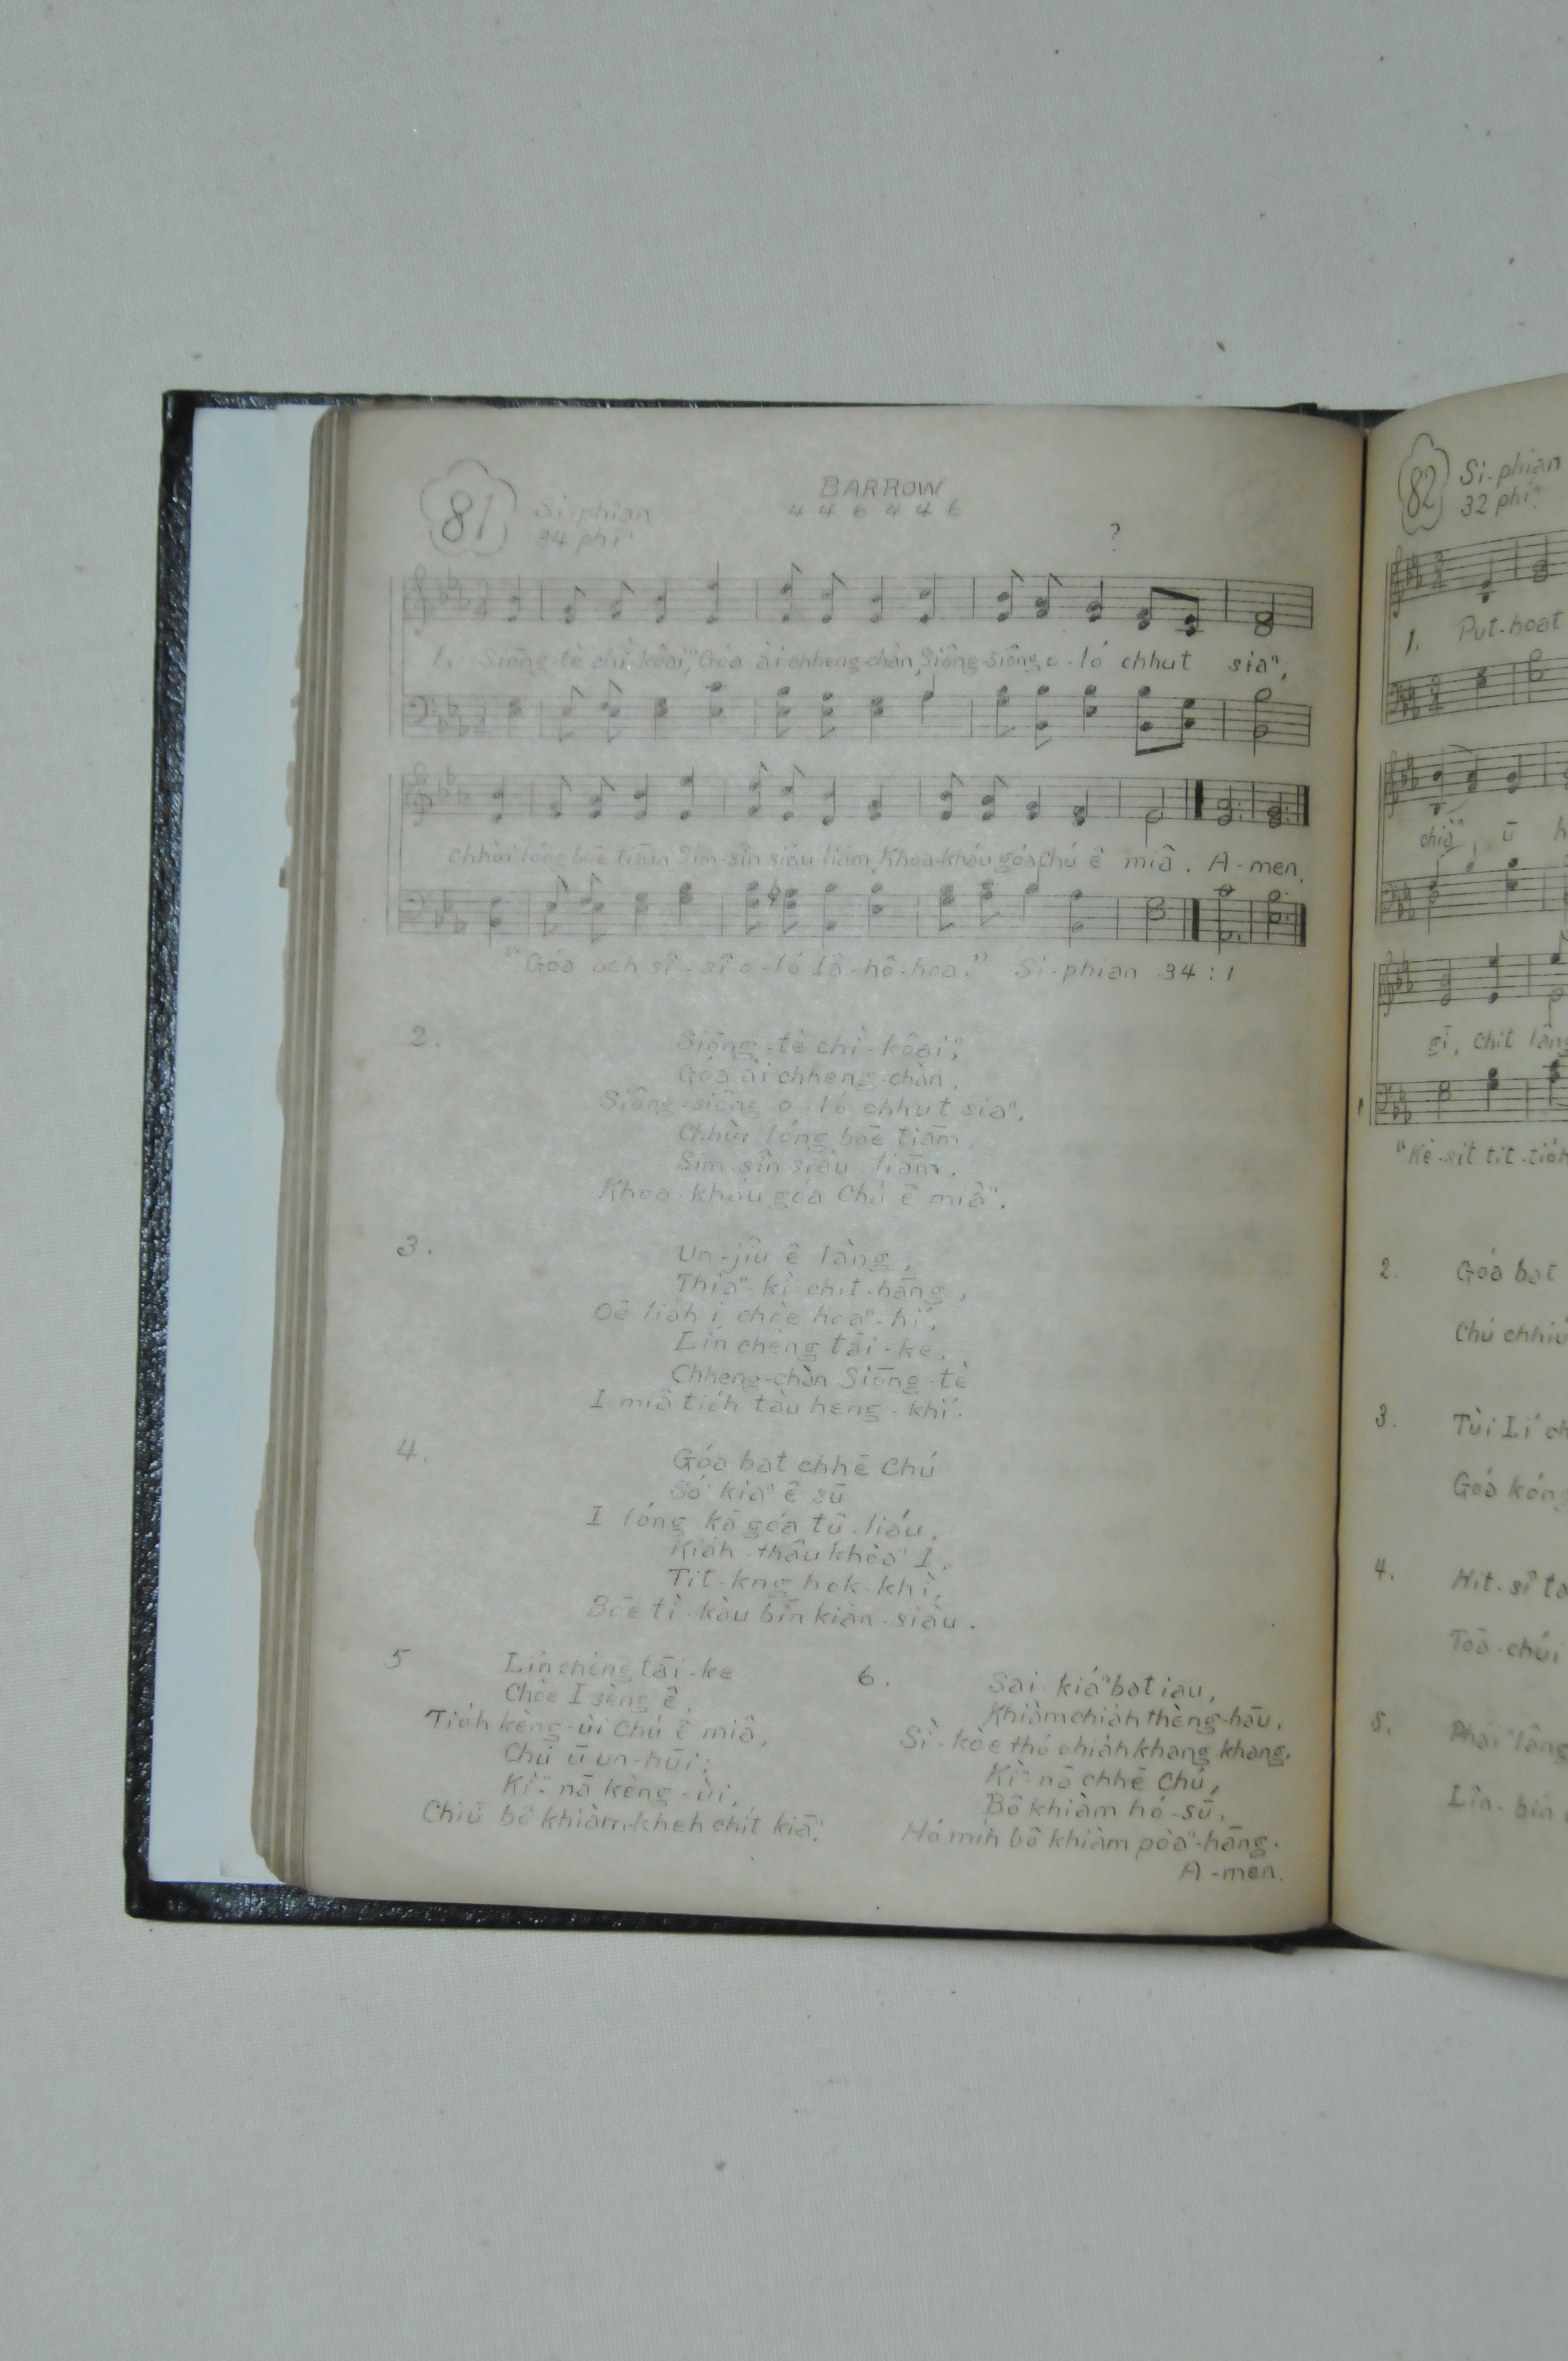 81
Si-phian
34 phiⁿ
BARROW
4 4 6 4 4 6
?
1. Siōng-tè chì-kôaiⁿ, Góa ài chheng-chàn, Siông-siông o-ló chhut siaⁿ,
Chhùi lóng bōe tiām, Sim-sîn siàu-liām, Khoa-kháu góa Chú ê miâ. A-men.
"Góa beh sî-sî o-ló Iâ-hô-hoa." Si-phian 34:1
2.
Siōng-tè chì-kôaiⁿ,
Góa ài chheng-chàn,
Siông-siông o-ló chhut siaⁿ,
Chhùi lóng bōe tiām,
Sim-sîn siàu liām,
Khoa-kháu góa Chú ê miâⁿ.
3.
Un-jiû ê lâng,
Thiaⁿ-kì chit-hāng,
Oē liáh i chòe hoaⁿ-hí,
Lín chèng tāi-ke,
Chheng-chàn Siōng-tè
I miâ tióh tàu heng-khí.
4.
Góa bat chhē Chú
Só͘ kiaⁿ ê sū
I lóng kā góa tû-liáu,
Kiáh-thâu khòaⁿ I,
Tit-kng hok-khì,
Bōe tì-kàu bīn kiàn-siàu.
5
Lín chèng tāi-ke
Chòe I sèng ê,
Tióh kèng-ùi Chú ê miâ,
Chú ū un-hūi;
Kìⁿ-nā kèng-ùi,
Chiū bô khiàm-kheh chit kiāⁿ.
6.
Sai-kiáⁿ bat iau,
Khiàm chiáh thèng-hāu,
Sì-kòe thó chiáh khang khang.
Kìⁿ-nā chhē Chú,
Bô khiàm hó-sū,
Hó mih bô khiàm pòaⁿ-hāng.
A-men.
82
Si-phian
32 phiⁿ
1. Put-hoat
chiàⁿ, ū
gī, chit lâng
"Kè-sit tit-tióh
2. Góa bat
Chú chhiú
3. Tùi Lí
Góa kóng
4. Hit-sî
Toā-chúi
5. Pháiⁿ lâng
Lîn-bín